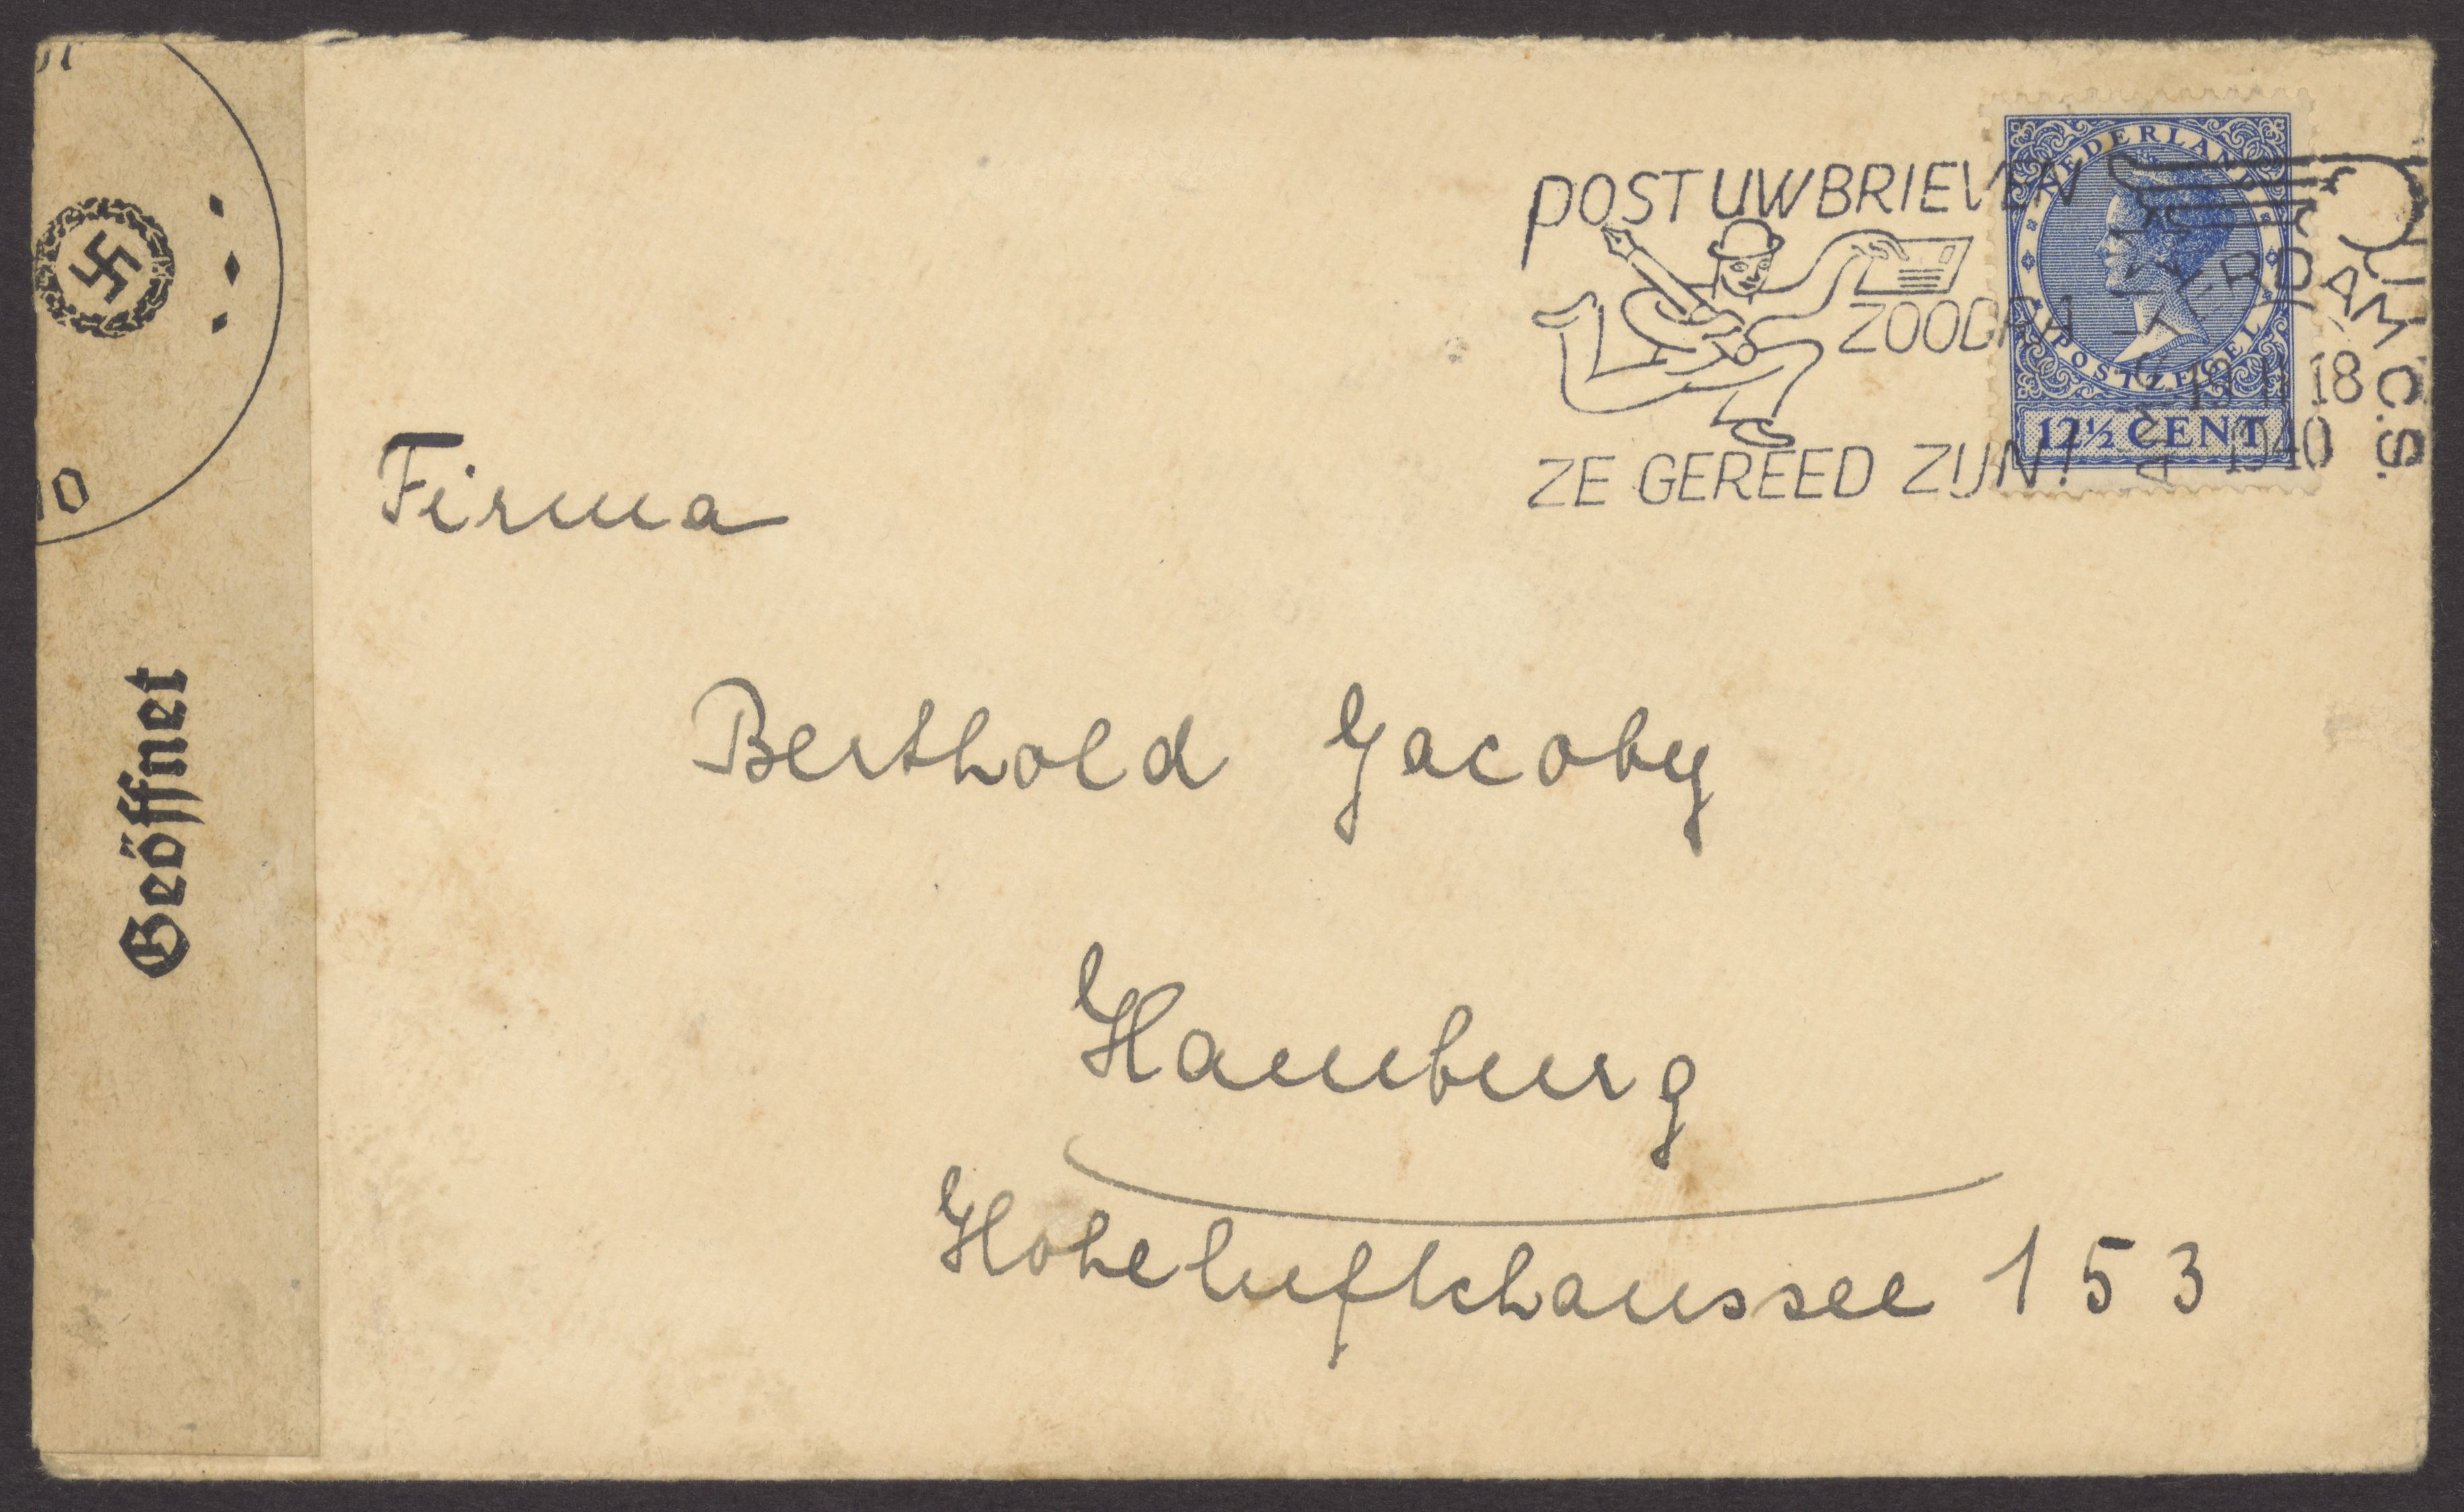 Geöffnet
POST UW BRIEVEN
ZOODRA
ZE GEREED ZIJN!
NEDERLAND
POSTZEGEL
12½ CENT
AMSTERDAM C.S.
19 II 18
1940
Firma
Berthold Jacoby
Hamburg
Hoheluftchaussee 153